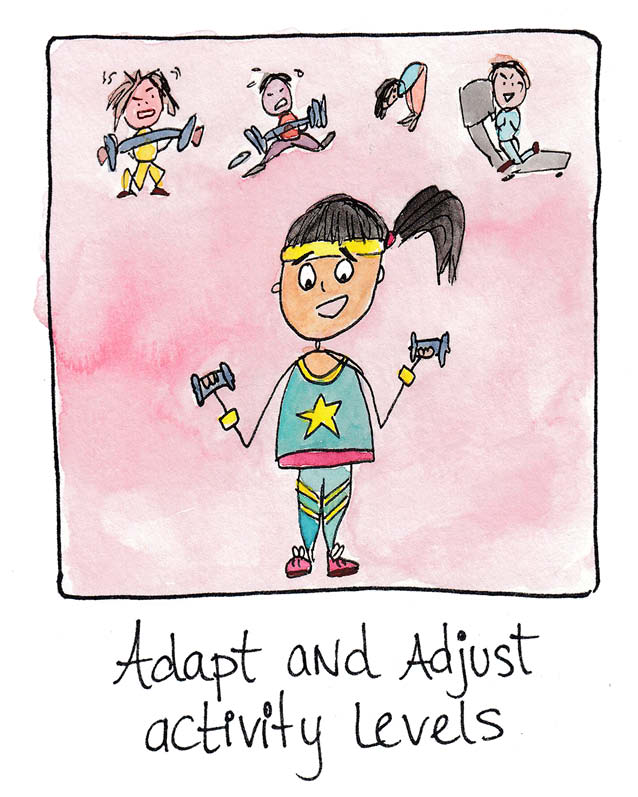 Adapt and Adjust
activity Levels